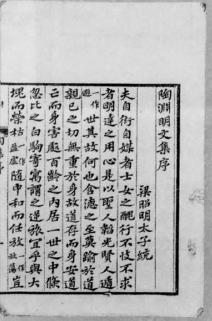 陶淵明文集序
梁昭明太子統
夫自衒自媒者士女之醜行不忮不求
者明達之用心是以聖人韜光賢人遁
世其故何也含德之至莫踰於道
親己之切無重於身故道存而身安道
亡而身害處百齡之內居一世之中倏
忽比之白駒寄寓謂之逆旅宜乎與大
塊而榮枯隨中和而任放豈